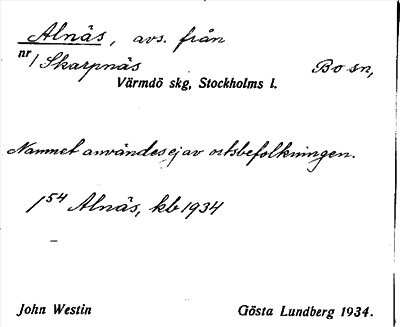 Alnäs, avs. från
nr/Skarpnäs Bo sn,
Värmdö skg, Stockholms l.
Namnet användes ej av ortsbefolkningen.
1⁵⁴ Alnäs, kb 1934
John Westin Gösta Lundberg 1934.